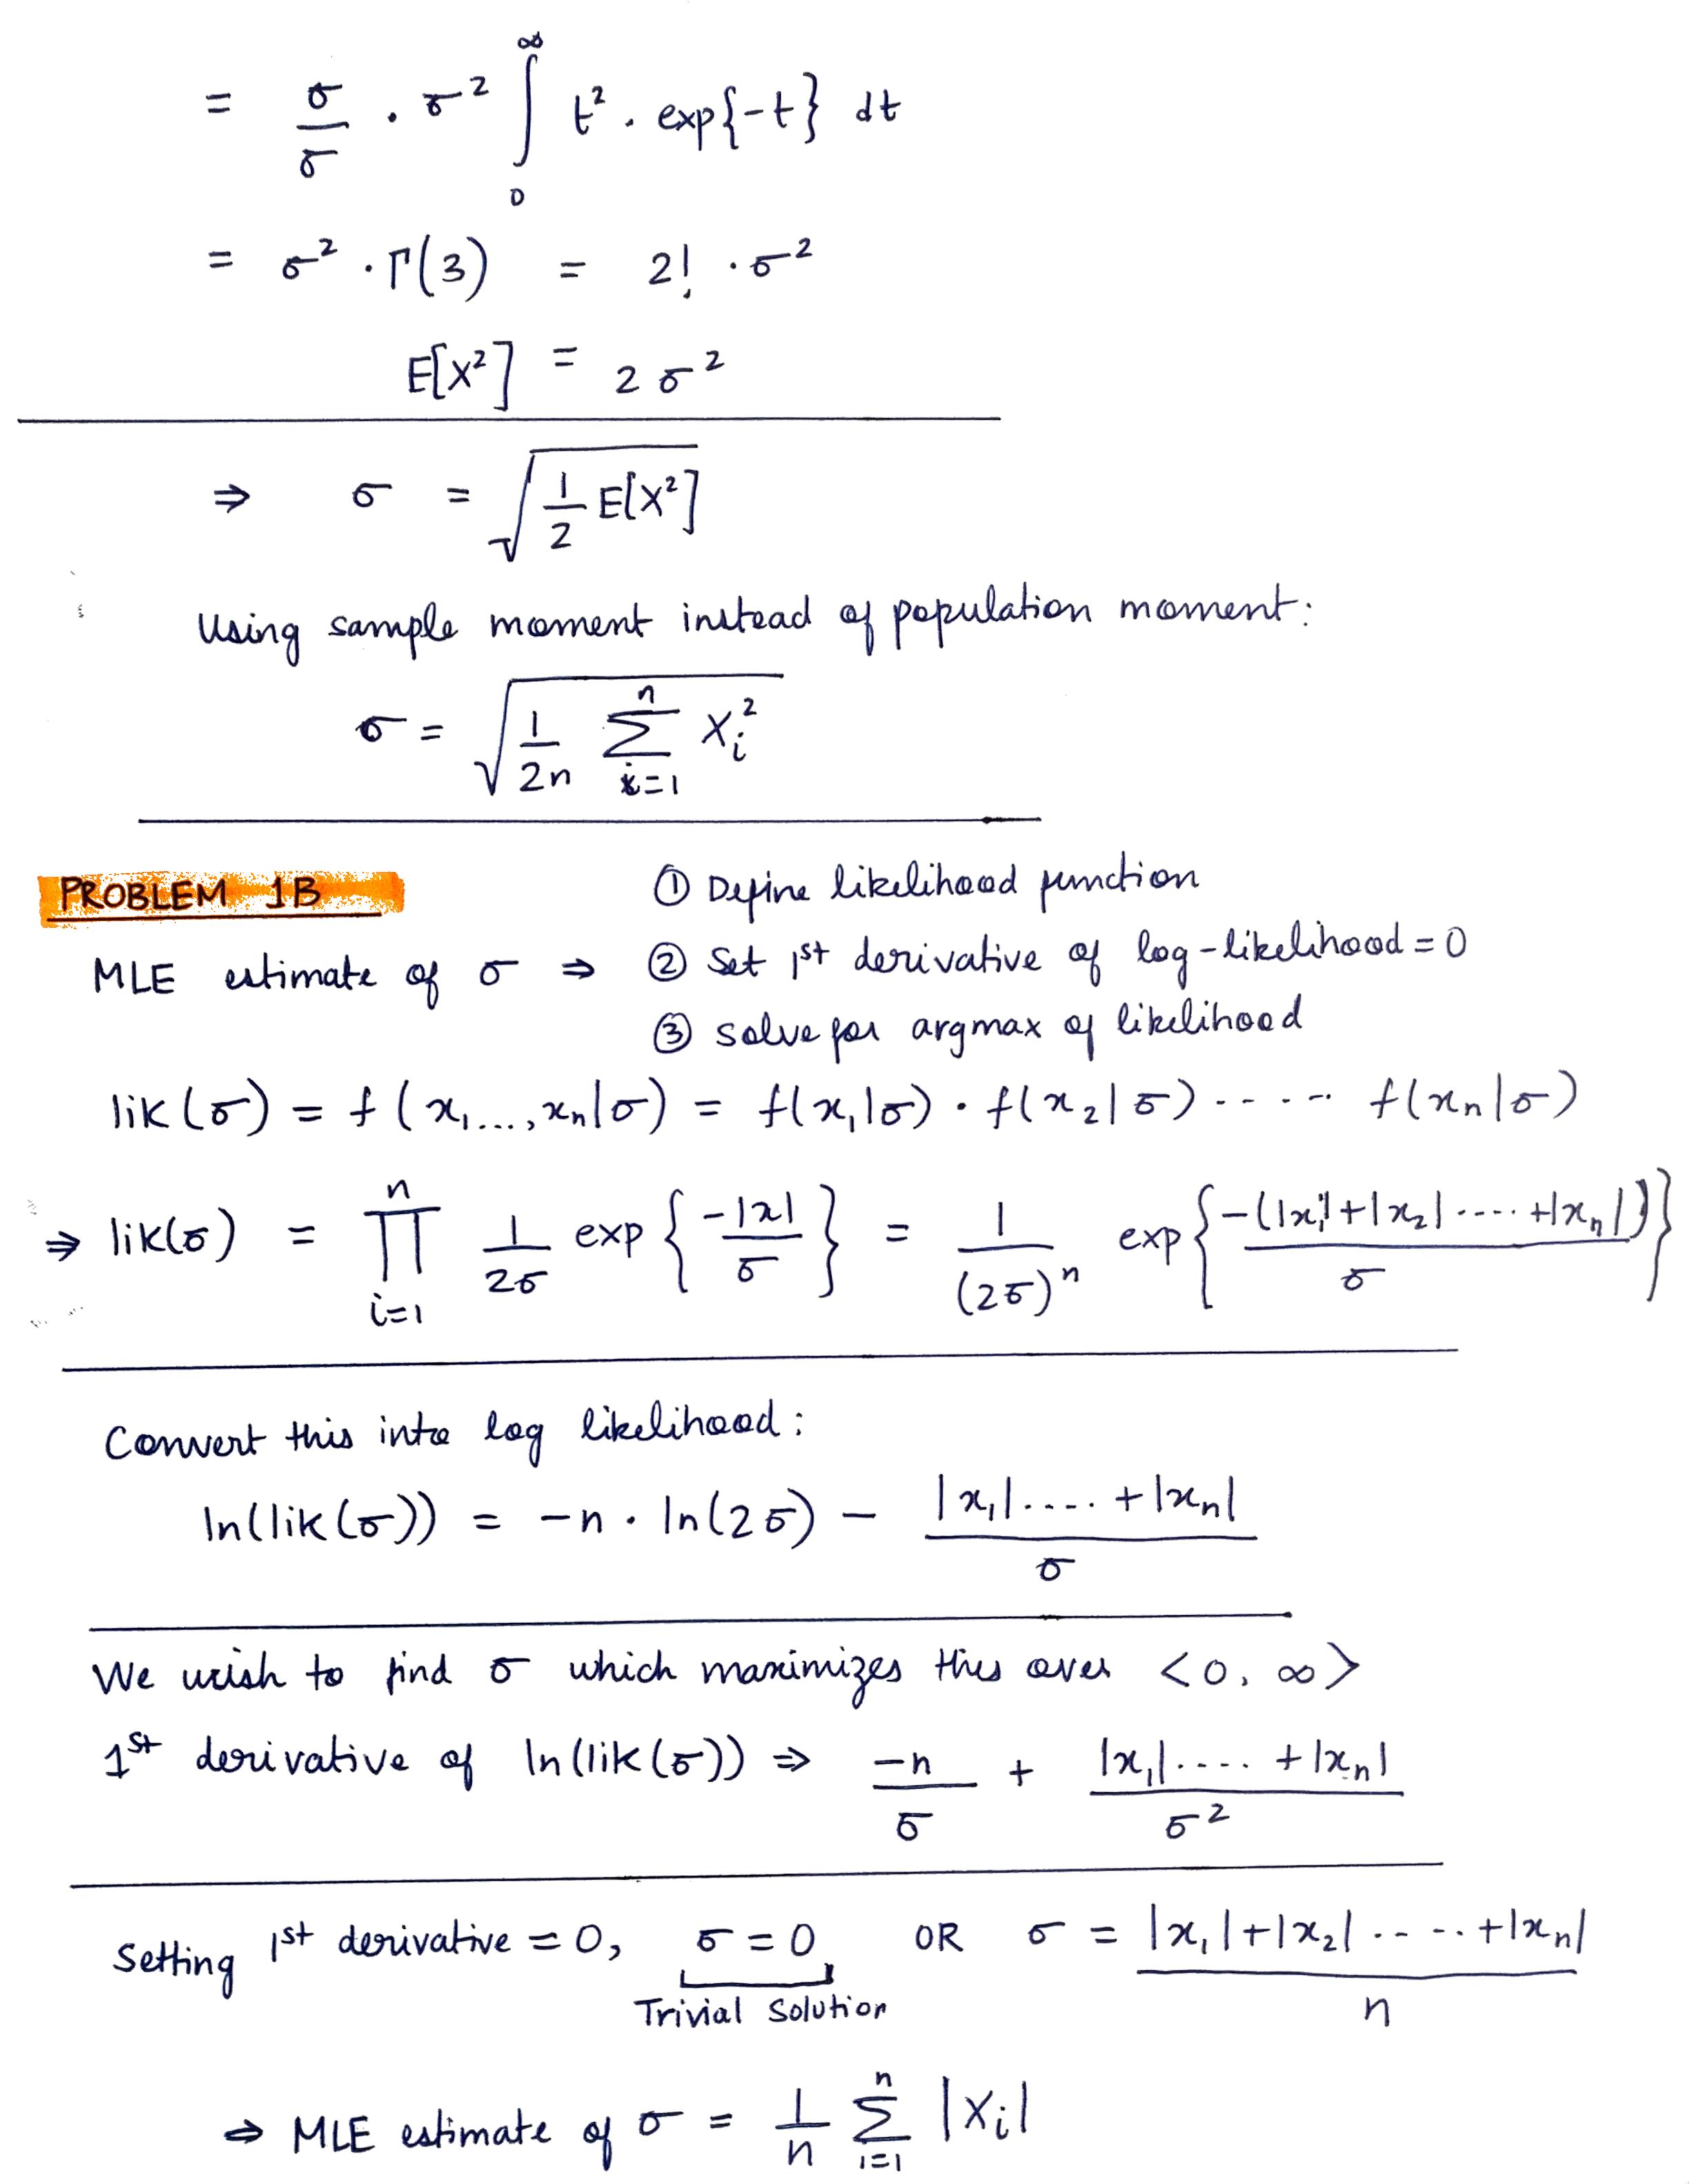 = σ/σ · σ² ∫₀^∞ t² · exp{-t} dt
= σ² · Γ(3) = 2! · σ²
E[X²] = 2σ²
⇒ σ = √(1/2 E[X²])
Using sample moment instead of population moment:
σ = √(1/2n Σ_{i=1}^{n} X_i²)
PROBLEM 1B
① Define likelihood function
MLE estimate of σ ⇒ ② Set 1st derivative of log-likelihood = 0
③ Solve for argmax of likelihood
lik(σ) = f(x₁...,xₙ|σ) = f(x₁|σ) · f(x₂|σ) ----- f(xₙ|σ)
⇒ lik(σ) = ∏_{i=1}^{n} 1/2σ exp{-|x|/σ} = 1/(2σ)ⁿ exp{-(|x₁|+|x₂|.....+|xₙ|)/σ}
Convert this into log likelihood:
ln(lik(σ)) = -n · ln(2σ) - |x₁|.....+|xₙ|/σ
We wish to find σ which maximizes this over <0, ∞>
1st derivative of ln(lik(σ)) ⇒ -n/σ + |x₁|.....+|xₙ|/σ²
Setting 1st derivative = 0, σ = 0 OR σ = |x₁|+|x₂|.....+|xₙ|/n
Trivial Solution
⇒ MLE estimate of σ = 1/n Σ_{i=1}^{n} |X_i|